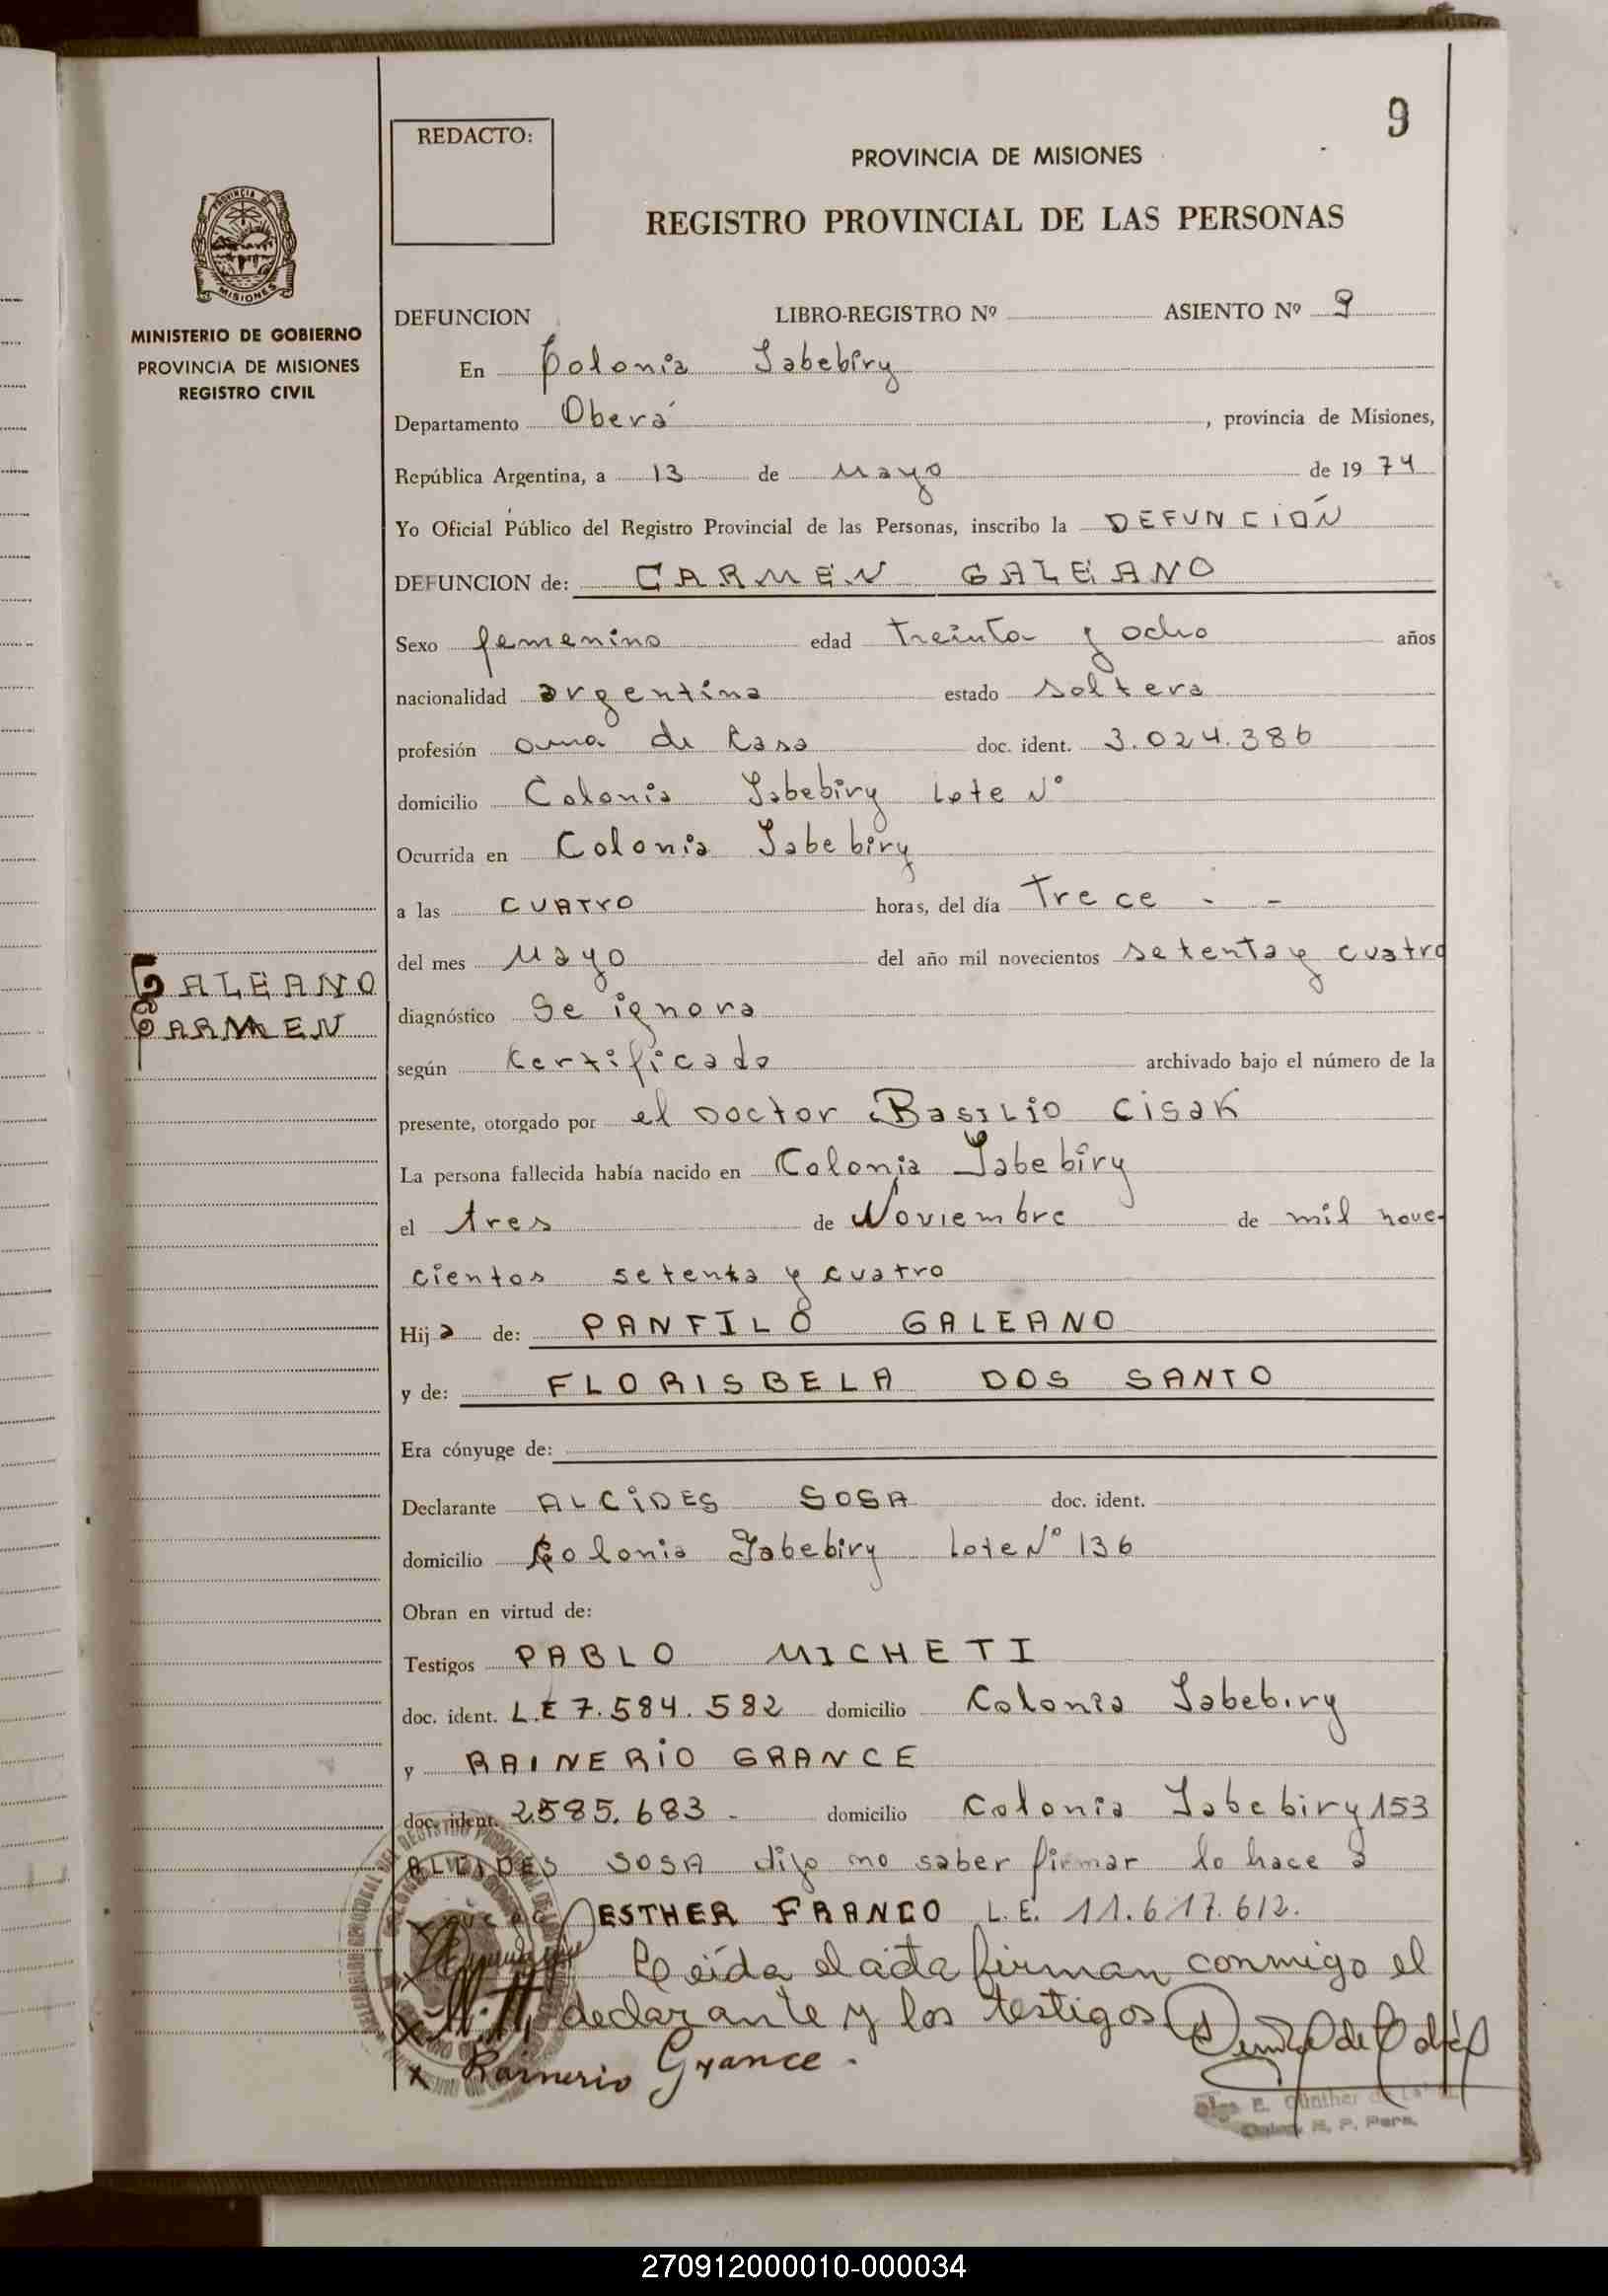 9
REDACTO:
PROVINCIA DE MISIONES
REGISTRO PROVINCIAL DE LAS PERSONAS
PROVINCIA DE
MISIONES
MINISTERIO DE GOBIERNO
PROVINCIA DE MISIONES
REGISTRO CIVIL
DEFUNCION LIBRO-REGISTRO Nº ASIENTO Nº 9
En Colonia Yabebiry
Departamento Oberá, provincia de Misiones,
República Argentina, a 13 de Mayo de 1974
Yo Oficial Público del Registro Provincial de las Personas, inscribo la DEFUNCIÓN
DEFUNCION de: CARMEN GALEANO
Sexo femenino edad treinta y ocho años
nacionalidad argentina estado soltera
profesión ama de Casa doc. ident. 3.024.386
domicilio Colonia Yabebiry Lote Nº
Ocurrida en Colonia Yabebiry
a las CUATRO horas, del día Trece - -
del mes Mayo del año mil novecientos setenta y cuatro
GALEANO
CARMEN
diagnóstico Se ignora
según Certificado archivado bajo el número de la
presente, otorgado por el Doctor BASILIO CISAK
La persona fallecida había nacido en Colonia Yabebiry
el tres de Noviembre de mil nove-
cientos setenta y cuatro
Hija de: PANFILO GALEANO
y de: FLORISBELA DOS SANTO
Era cónyuge de:
Declarante ALCIDES SOSA doc. ident.
domicilio Colonia Yabebiry Lote Nº 136
Obran en virtud de:
Testigos PABLO MICHETI
doc. ident. L.E 7.584.582 domicilio Colonia Yabebiry
y RAINERIO GRANCE
doc. ident. 2585.683 - domicilio Colonia Yabebiry 153
ALCIDES SOSA dijo no saber firmar lo hace a
ESTHER FRANCO L.E. 11.617.612.
Leída el acta firman conmigo el
declarante y los testigos
x Rainerio Grance.
E. Günther de
R. P. Pers.
270912000010-000034